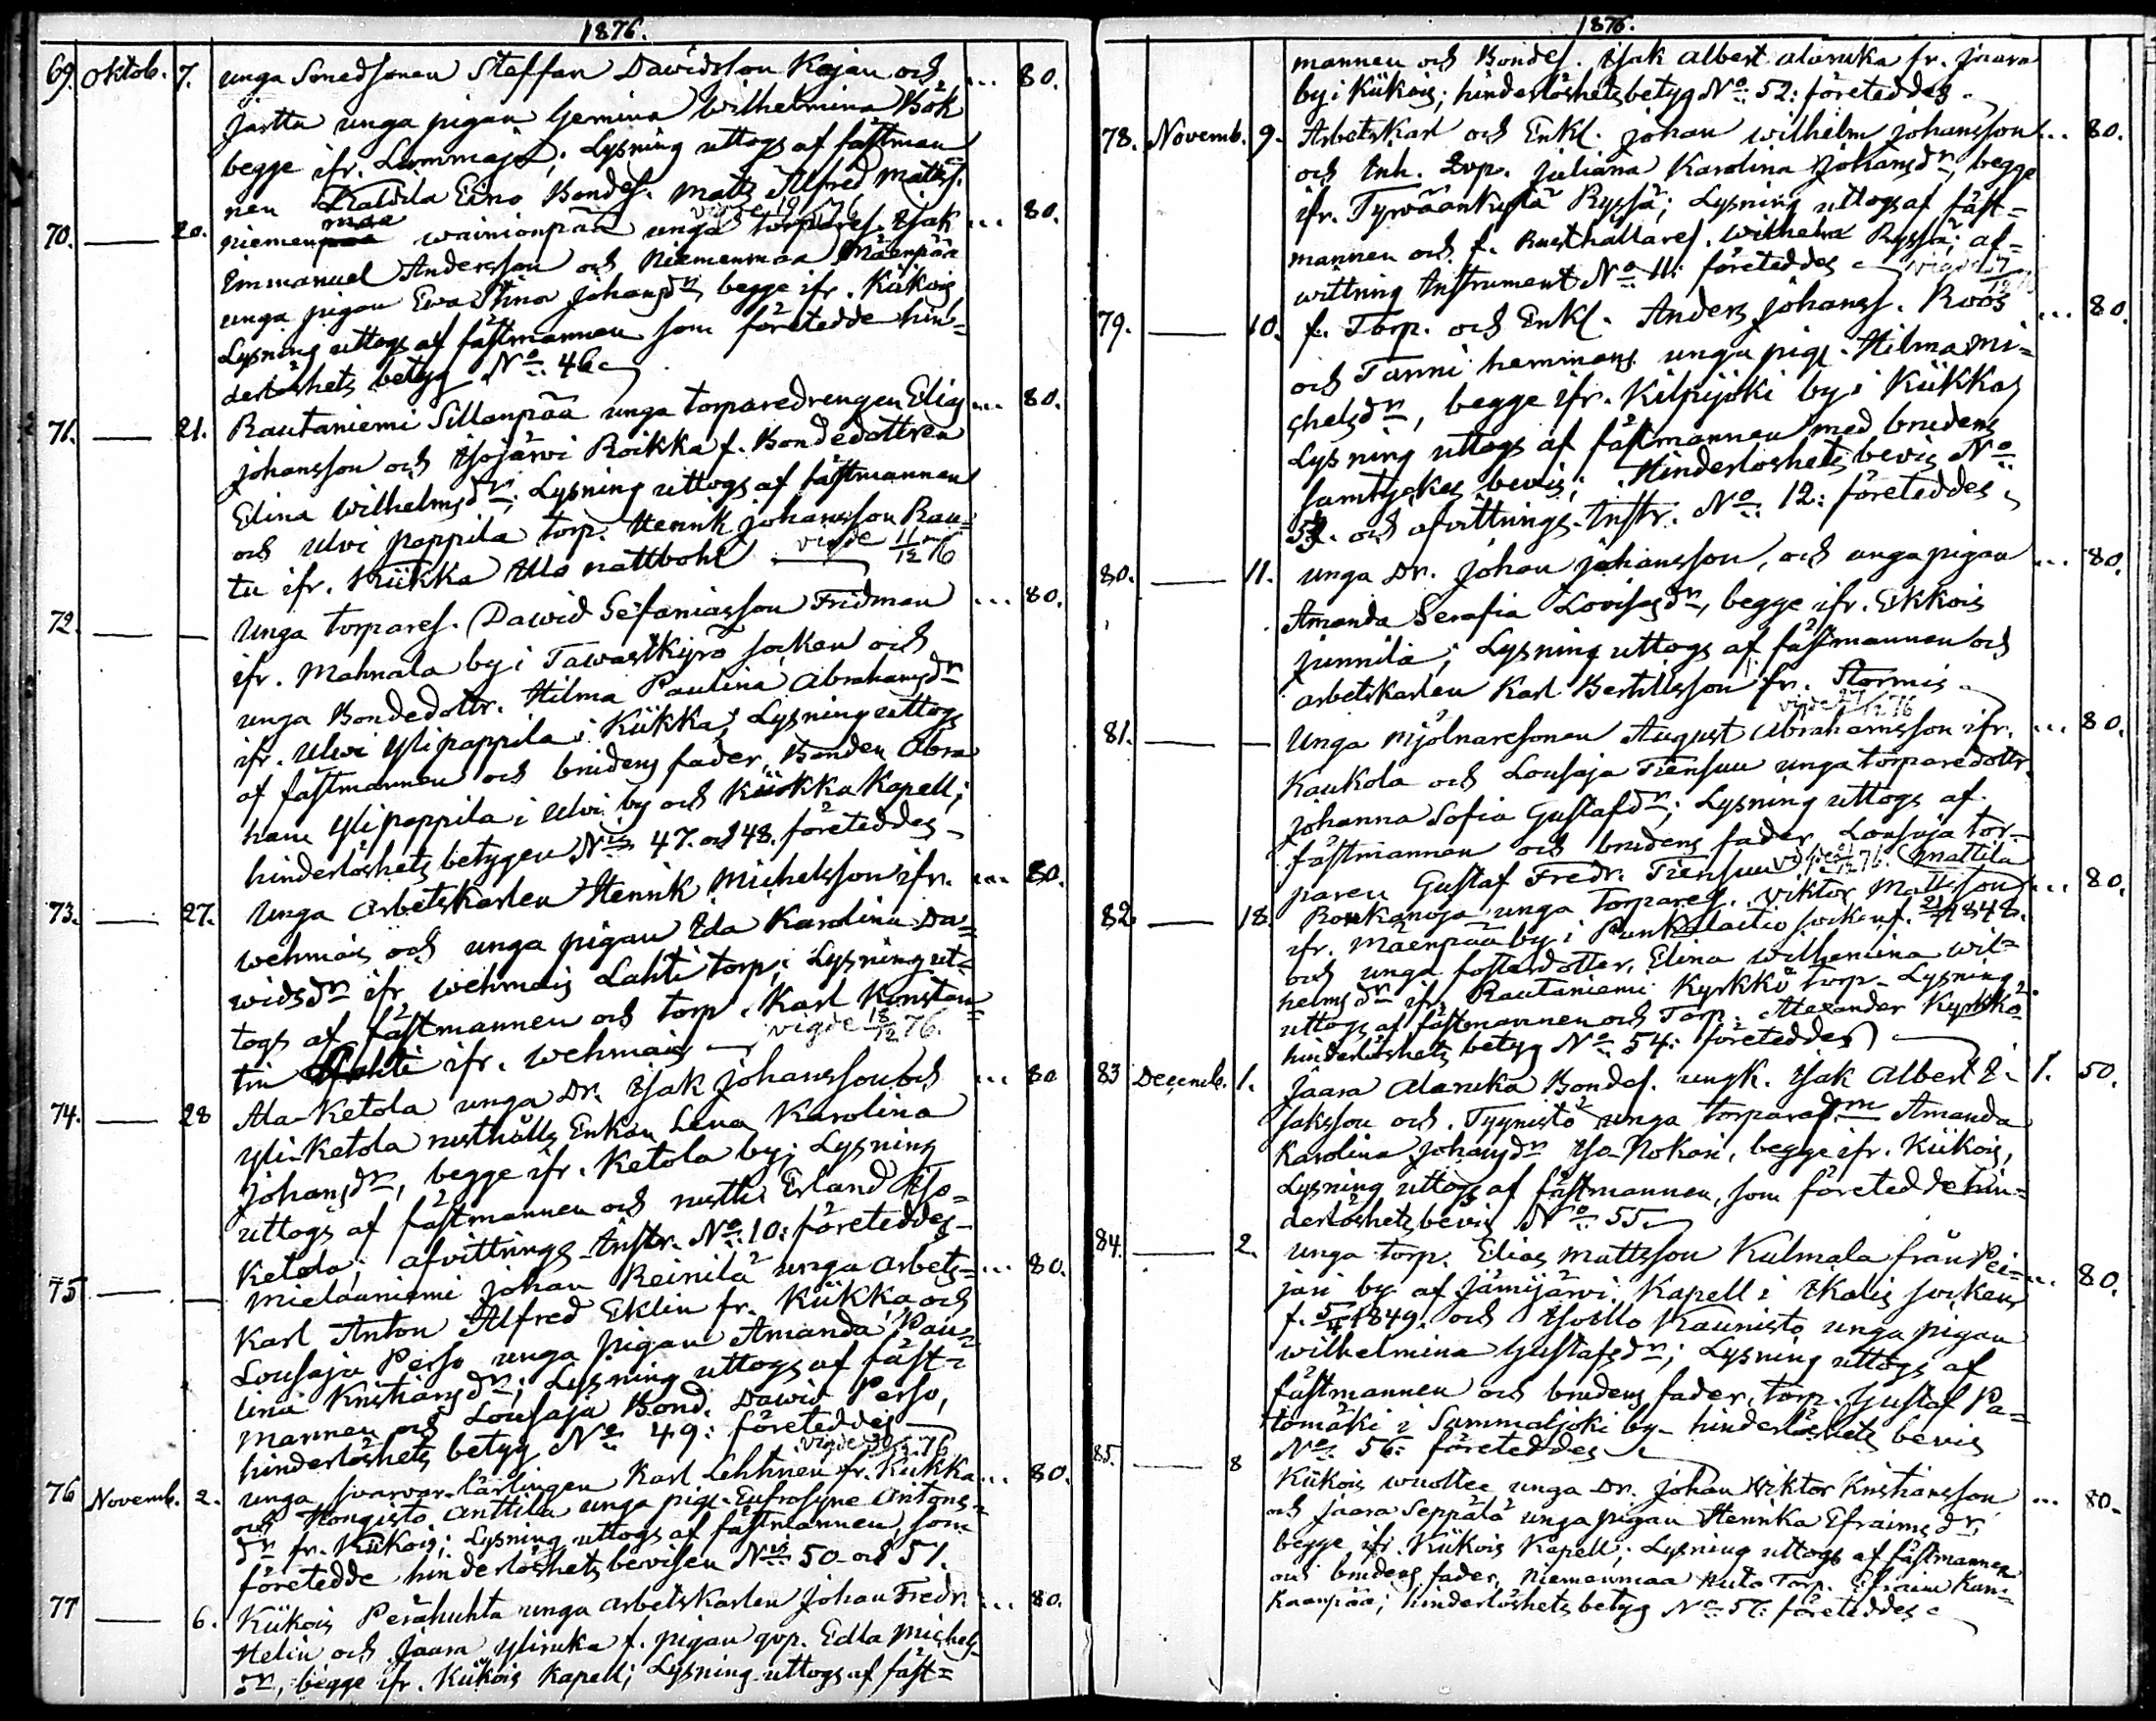 1876.
69. Oktob. 7. unga Smedsonen Steffan Dawidsson Kajan och ... 80.
Jartta unga pigan Gemina Wilhelmina Bök
begge ifr. Lummaja; Lysning uttogs af fästman
nen Kaldila Eino Bondes. Matts Alfred Mattss.
70. — 20. Niemenmaa Wainionpää unga torpares. Isak ... 80.
Emmanuel Andersson och Niemenmaa Mäenpää
unga pigan Ewa Stina Johansdr begge ifr. Kiikois
Lysning uttogs af fästmannen som företedde hin=
derlöshets betyg No 46.
71. — 21. Rautaniemi Sillanpää unga torparedrengen Elias ... 80.
Johansson och Isojärvi Roikka f. Bondedottren
Elina Wilhelmsdr; Lysning uttogs af fästmannen
och Ulvi pappila torp. Henrik Johansson Rau=
tu ifr. Kiikka Ulo nattbohl vigde 11/12 76
72. — — Unga torpares. Dawid Sefaniasson Fridman ... 80.
ifr. Mahnala by i TawastKyrö socken och
unga Bondedottr. Hilma Paulina Abrahamsdr
ifr. Ulwi Ylipappila i Kiikka; Lysning uttogs
af fästmannen och brudens fader, Bonden Abra
ham Ylipappila i Ulvi by och Kiikka Kapell;
hinderlöshets betygen Nis 47. och 48. företeddes
73. — 27. Unga arbetskarlen Henrik Michelsson ifr. ... 80.
Wehmais och unga pigan Ida Karolina Da=
widsdr ifr Wehmais Lahti torp; Lysning ut=
togs af fästmannen och torp. Karl Konstan=
tin Lahti ifr. Wehmais vigde 18/12 76.
74. — 28 Ala-Ketola unga Dr. Isak Johansson och ... 80
Yli-Ketola rusthålls Enkan Lena Karolina
Johansdr, begge ifr. Ketola by; Lysning
uttogs af fästmannen och rusth. Erland Iso=
Ketola; afvittrings-Instr. No 10: företeddes
75 — — Mielauniemi Johan Reinilä unga arbets= ... 80.
Karl Anton Alfred Eklin fr. Kiikka och
Lousaja Perso unga pigan Amanda Pau=
lina Kristiansdr; Lysning uttogs af fäst=
mannen och Lousaja Bond. Dawid Perso,
hinderlöshets betyg No 49: företeddes
76 Novemb. 2. unga svarvar-lärlingen Karl Lehtinen fr. Kiikka ... 80.
och Kongisto Anttila unga pig. Eufrosyne Antons=
dr fr. Kiikois; Lysning uttogs af fästmannen, som
företedde hinderlöshets bevisen Nis 50 och 51.
77 — 6. Kiikois Perähuhta unga arbetskarlen Johan Fredr. ... 80.
Helin och Jaara Yliruka f. pigan qvp. Edla Michels
dr, begge ifr. Kiikois Kapell; Lysning uttogs af fäst=
1876.
mannen och Bondes. Isak Albert Alaruka fr. Jaara
by i Kiikois; hinderlöshetsbetyg No 52: företeddes.
78. Novemb. 9. ArbetsKarl och Enkl. Johan Wilhelm Johansson ... 80.
och Inh. Qvp. Juliana Karolina Johansdr, begge
ifr. Tyrwäänkylä Ryssä; Lysning uttogs af fäst=
mannen och f. Rusthållares. Wilhelm Ryssä; af=
wittring Instrument No 11: företeddes vigde 17/12 76
79. — 10. f. Torp. och Enkl. Anders Johanss. Roos ... 80.
och Tanni hemmans unga pig. Hilma Mi=
chelsdr, begge ifr. Kilpijoki by i Kiikka;
Lysning uttogs af fästmannen med brudens
samtyckes bevis; Hinderlöshets bevis No
53. och afvittrings-Instr. No 12: företeddes
80. — 11. unga Dr. Johan Johansson, och unga pigan ... 80.
Amanda Serafia Lovisasdr, begge ifr. Ekkois
Junnila; Lysning uttogs af fästmannen och
arbetskarlen Karl Bertilsson fr. Stormis.
81. — — Unga Mjölnaresonen August Abrahamsson ifr. ... 80.
Kaukola och Lousaja Tiensuu unga torparedottr.
Johanna Sofia Gustafsdr; Lysning uttogs af
fästmannen och brudens fader, Lousaja tor-
paren Gustaf Fredr. Tiensuu
82 — 18. Roukanoja unga Torpares. Viktor Mattsson Mattila ... 80.
ifr. Mäenpää by i Punkalaitio socken f. 21/7 1848.
och unga fosterdotter, Elina Wilhemina Wil=
helmsdr ifr. Rautaniemi Kyrkkö torp. Lysning
uttogs af fästmannen och Torp. Alexander Kyrkkö
hinderlöshets betyg No 54: företeddes
83 Decemb. 1. Jaara Alaruka Bondes. ungk. Isak Albert I- 1. 50.
saksson och Tyynistö unga torparedr Amanda
Karolina Johansdr Iso-Nokari, begge ifr. Kiikois,
Lysning uttogs af fästmannen, som företedde hin=
derlöshets bevis No 55.
84. — 2. unga torp. Elias Mattsson Kulmala från Pei= ... 80.
jari by af Jämijärvi Kapell i Ikalis socken
f. 5/4 1849. och Isollo Kaunisto unga pigan
Wilhelmina Gustafsdr; Lysning uttogs af
fästmannen och brudens fader, torp. Gustaf Pa=
tomäki i Sammaljoki by. hinderlöshets bevis
No 56: företeddes
85. — 8 Kiikois Wuoltee unga Dr. Johan Wiktor Kristiansson ... 80.
och Jaara Seppälä unga pigan Henrika Efraimsdr,
begge ifr. Kiikois Kapell; Lysning uttogs af fästmannen
och brudens fader, Niemenmaa Auto Torp. Efraim Kan=
Kaanpää; hinderlöshets betyg No 57: företeddes